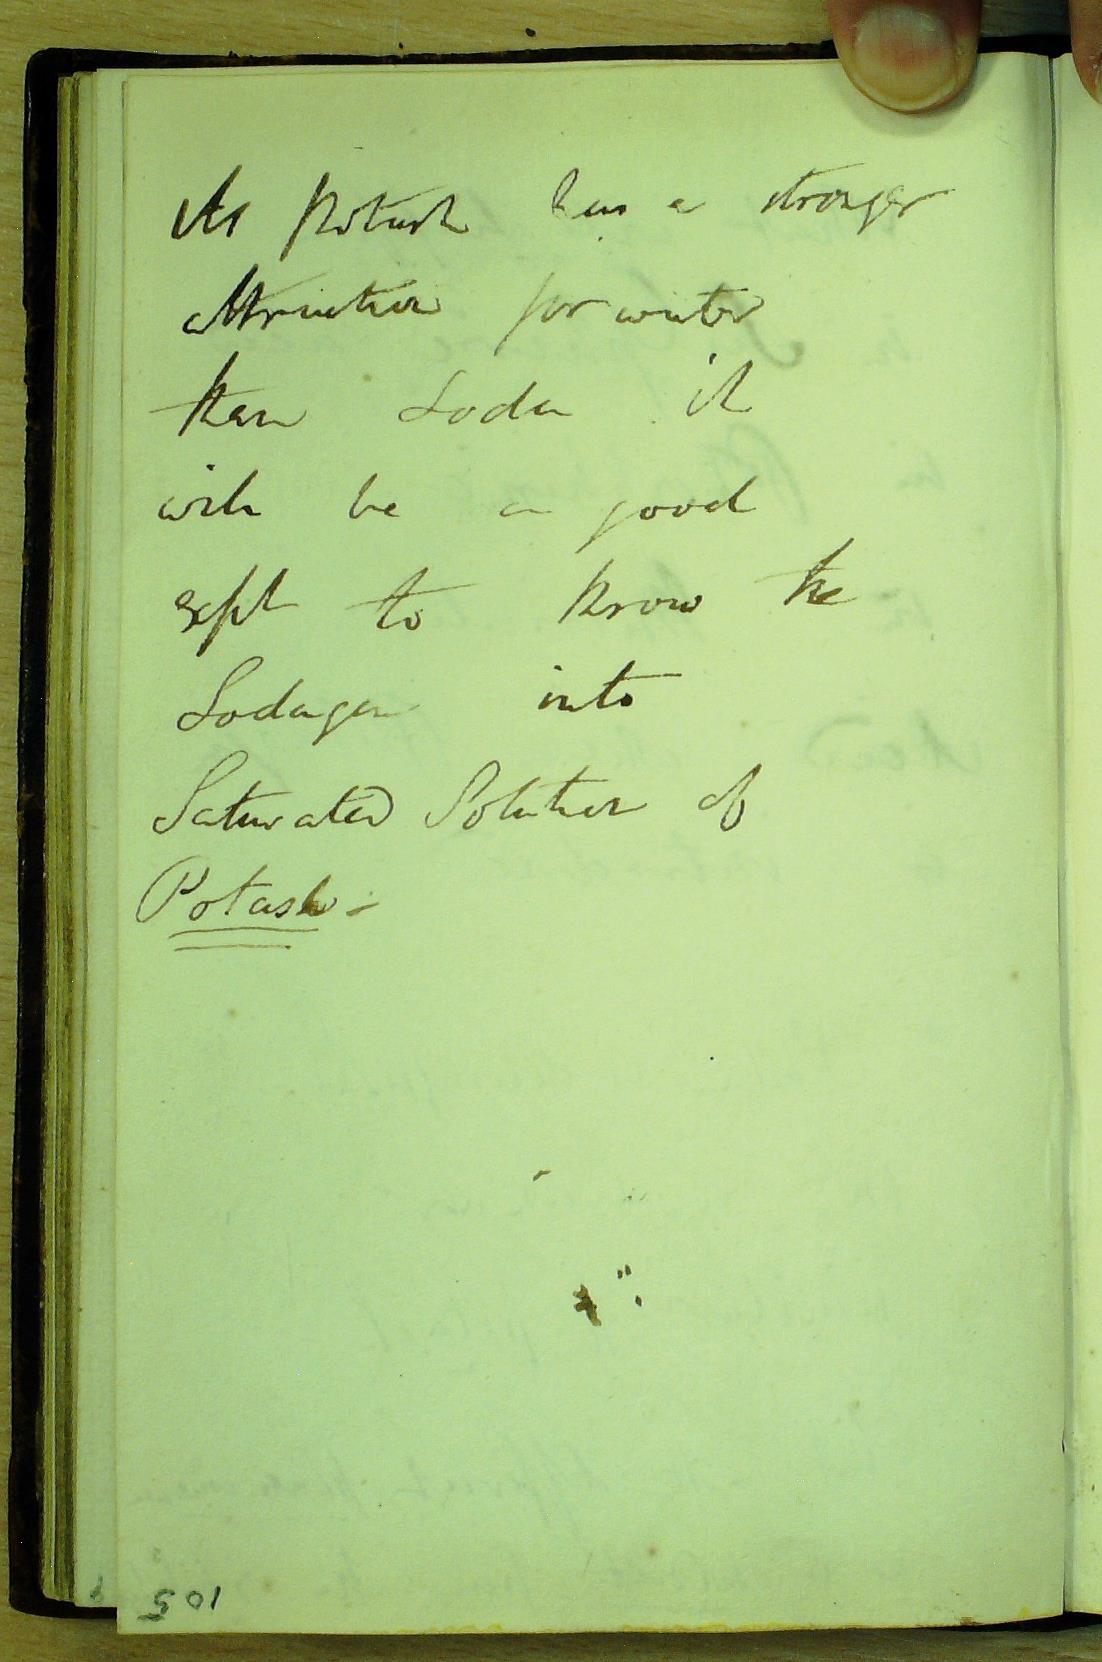 As Potash has a stronger
attraction for water
than Soda it
will be a good
expt to throw the
Sodagen into
Saturated Solution of
Potash -
105